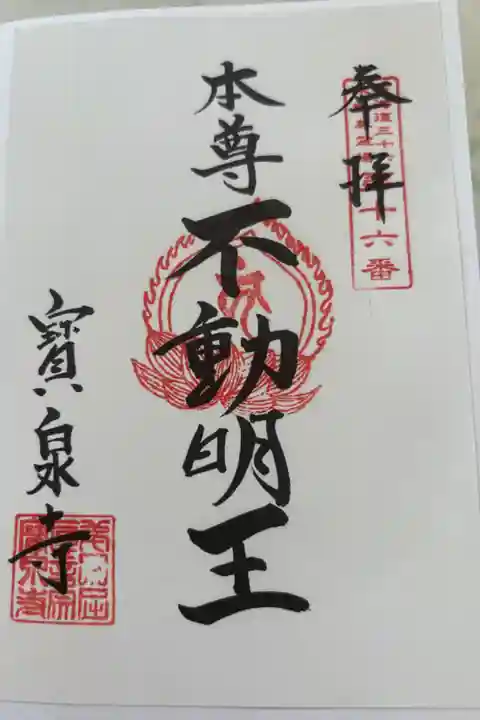 奉拝
十六番
本尊
不動明王
寶泉寺